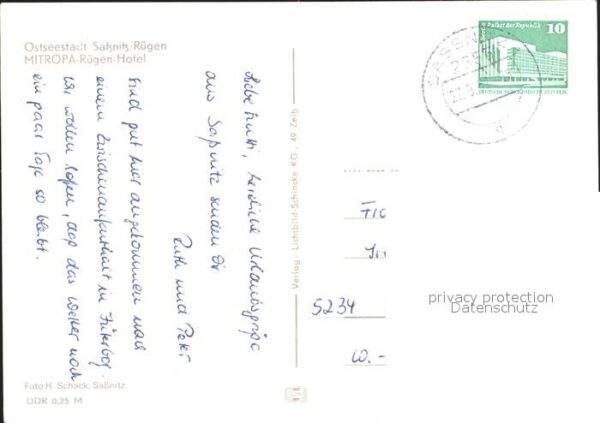 Ostseestadt Saßnitz/Rügen
MITROPA-Rügen-Hotel
Liebe Mutti, herzliche Urlaubsgrüße
aus Saßnitz senden Dir
Ruth und Peter
Sind gut hier angekommen nach
einem Zwischenaufenthalt in Jüterbog.
Wir wollen hoffen, daß das Wetter noch
ein paar Tage so bleibt.
Foto H. Schack, Saßnitz
DDR 0,25 M
Verlag: Lichtbild-Schincke KG., 49 Zeitz
Palast der Republik
10
DEUTSCHE DEMOKRATISCHE REPUBLIK
SASSN
2355
5234
W.-
privacy protection
Datenschutz